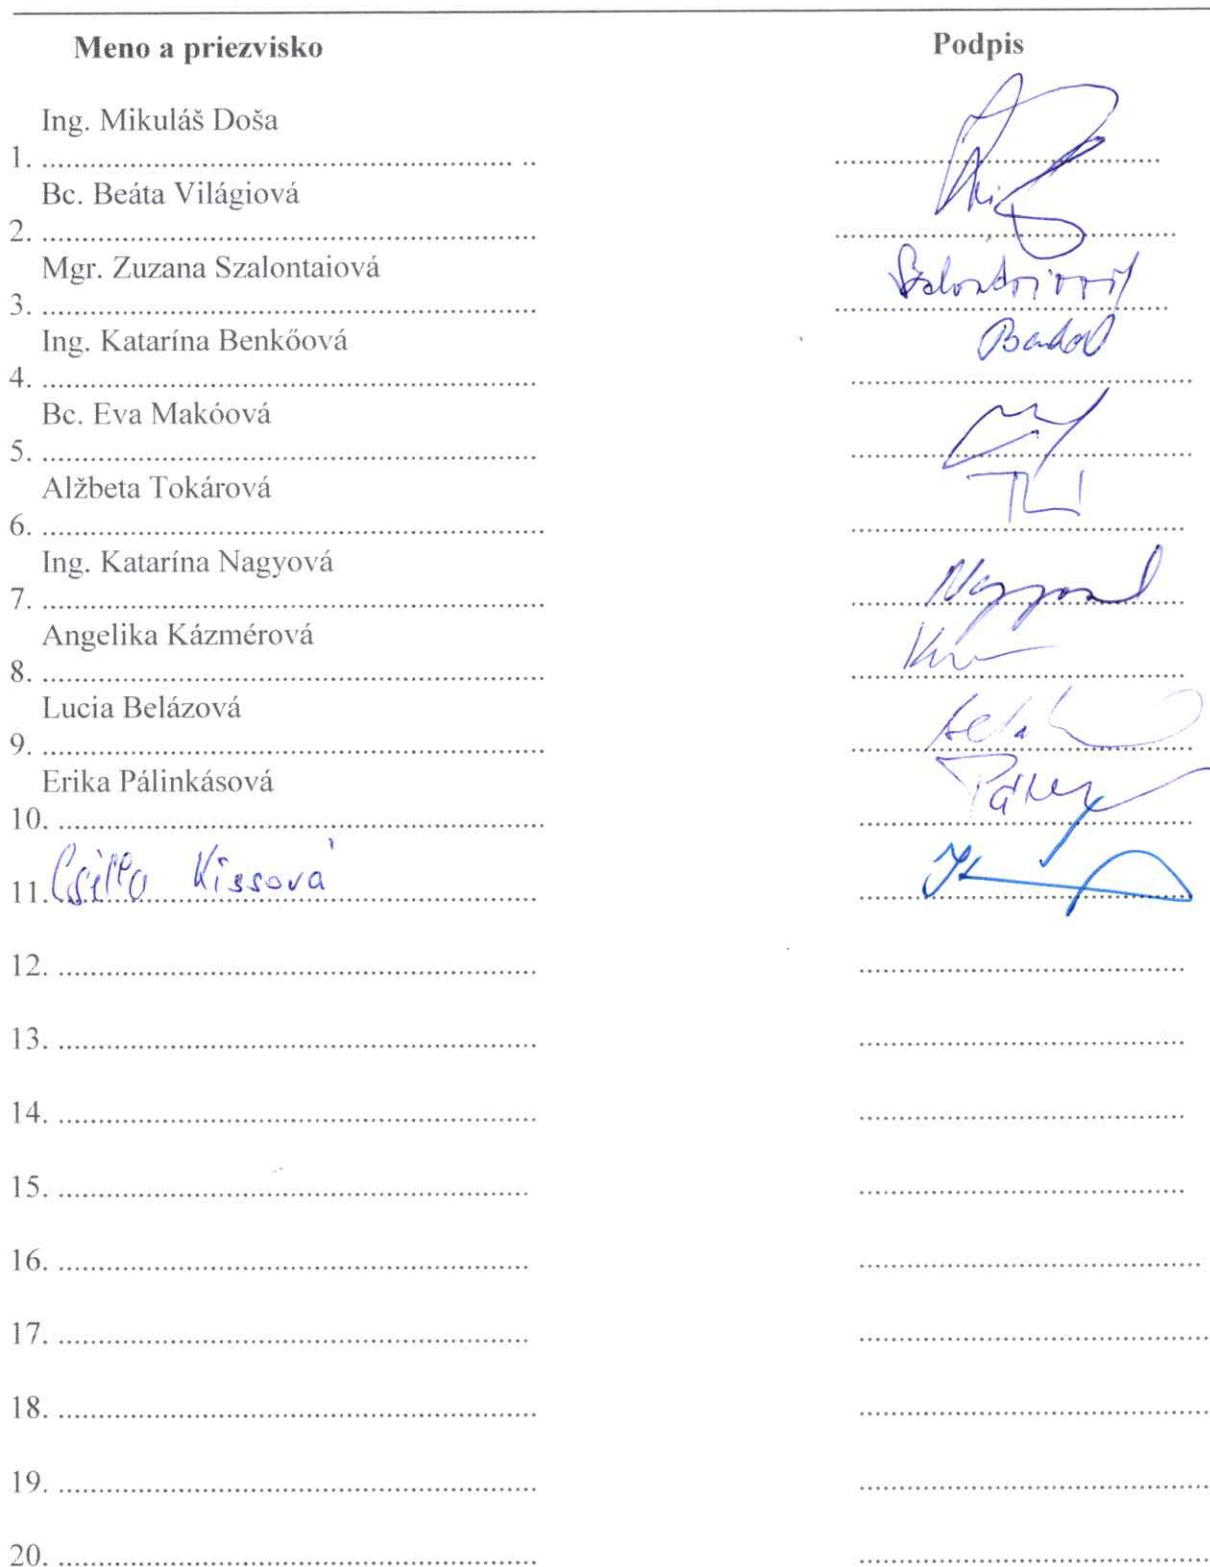 Meno a priezvisko Podpis
Ing. Mikuláš Doša
1. .......................................................... ..
Bc. Beáta Világiová
2. ..........................................................
Mgr. Zuzana Szalontaiová
3. ..........................................................
Ing. Katarína Benkőová
4. ..........................................................
Bc. Eva Makóová
5. ..........................................................
Alžbeta Tokárová
6. ..........................................................
Ing. Katarína Nagyová
7. ..........................................................
Angelika Kázmérová
8. ..........................................................
Lucia Belázová
9. ..........................................................
Erika Pálinkásová
10. ..........................................................
11. Csilla Kissová
12. ..........................................................
13. ..........................................................
14. ..........................................................
15. ..........................................................
16. ..........................................................
17. ..........................................................
18. ..........................................................
19. ..........................................................
20. ..........................................................